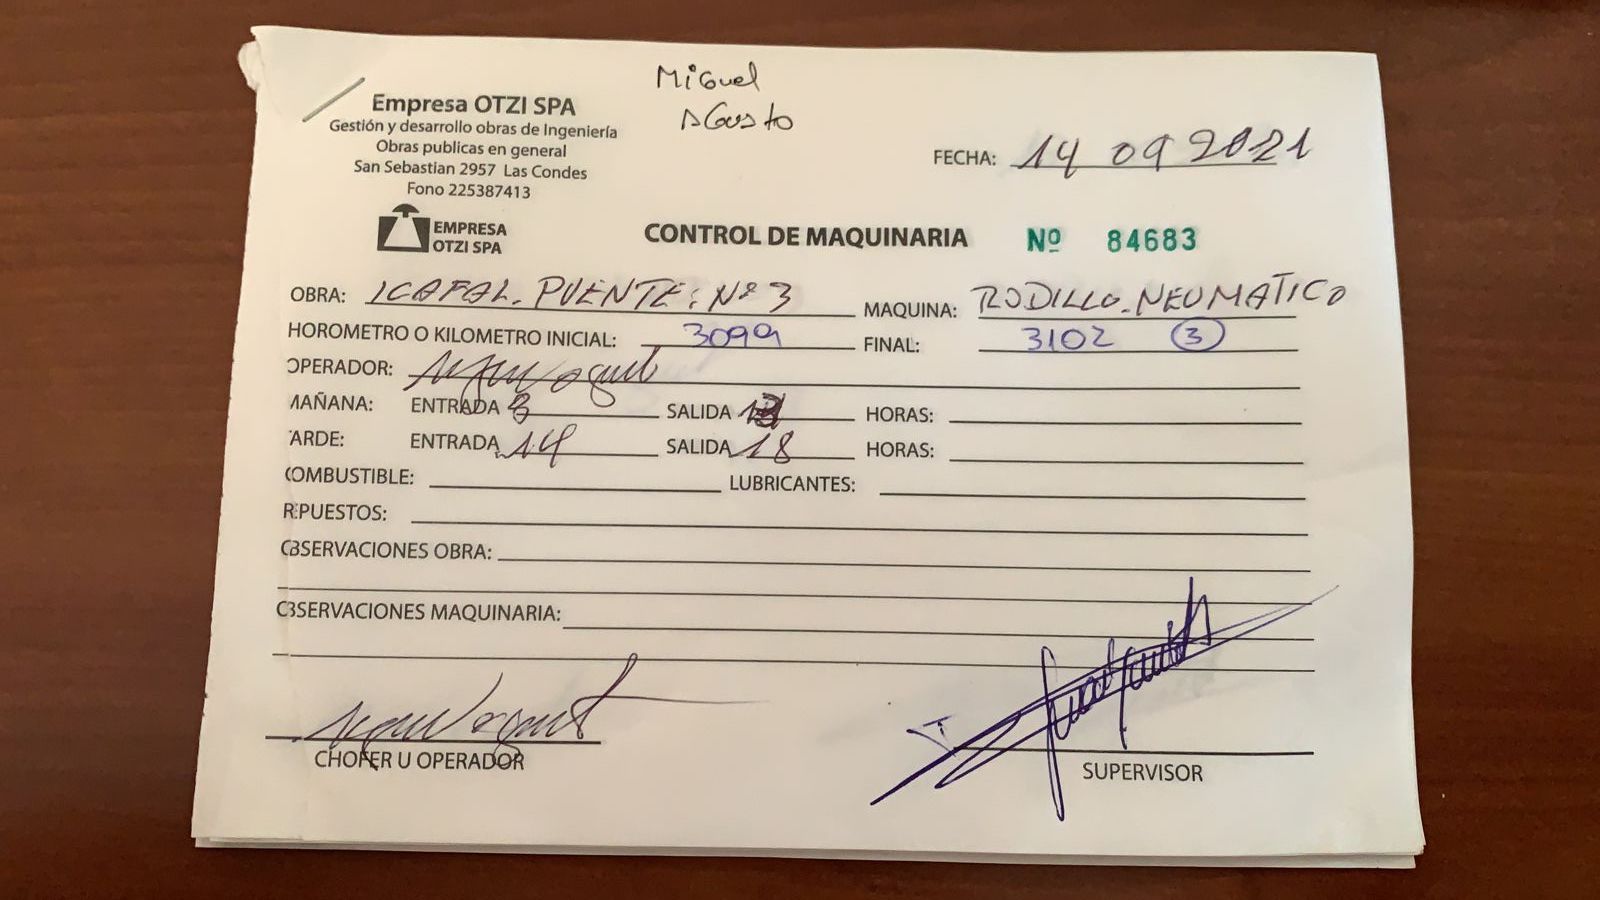 Miguel
AGusto
Empresa OTZI SPA
Gestión y desarrollo obras de Ingeniería
Obras publicas en general
San Sebastian 2957 Las Condes
Fono 225387413
EMPRESA
OTZI SPA
FECHA: 14 09 2021
CONTROL DE MAQUINARIA Nº 84683
OBRA: ICAFAL. PUENTE: Nº 3 MAQUINA: RODILLO. NEUMATICO
HOROMETRO O KILOMETRO INICIAL: 3099 FINAL: 3102 3
OPERADOR:
MAÑANA: ENTRADA 8 SALIDA 13 HORAS:
TARDE: ENTRADA 14 SALIDA 18 HORAS:
COMBUSTIBLE: LUBRICANTES:
REPUESTOS:
OBSERVACIONES OBRA:
OBSERVACIONES MAQUINARIA:
CHOFER U OPERADOR
SUPERVISOR